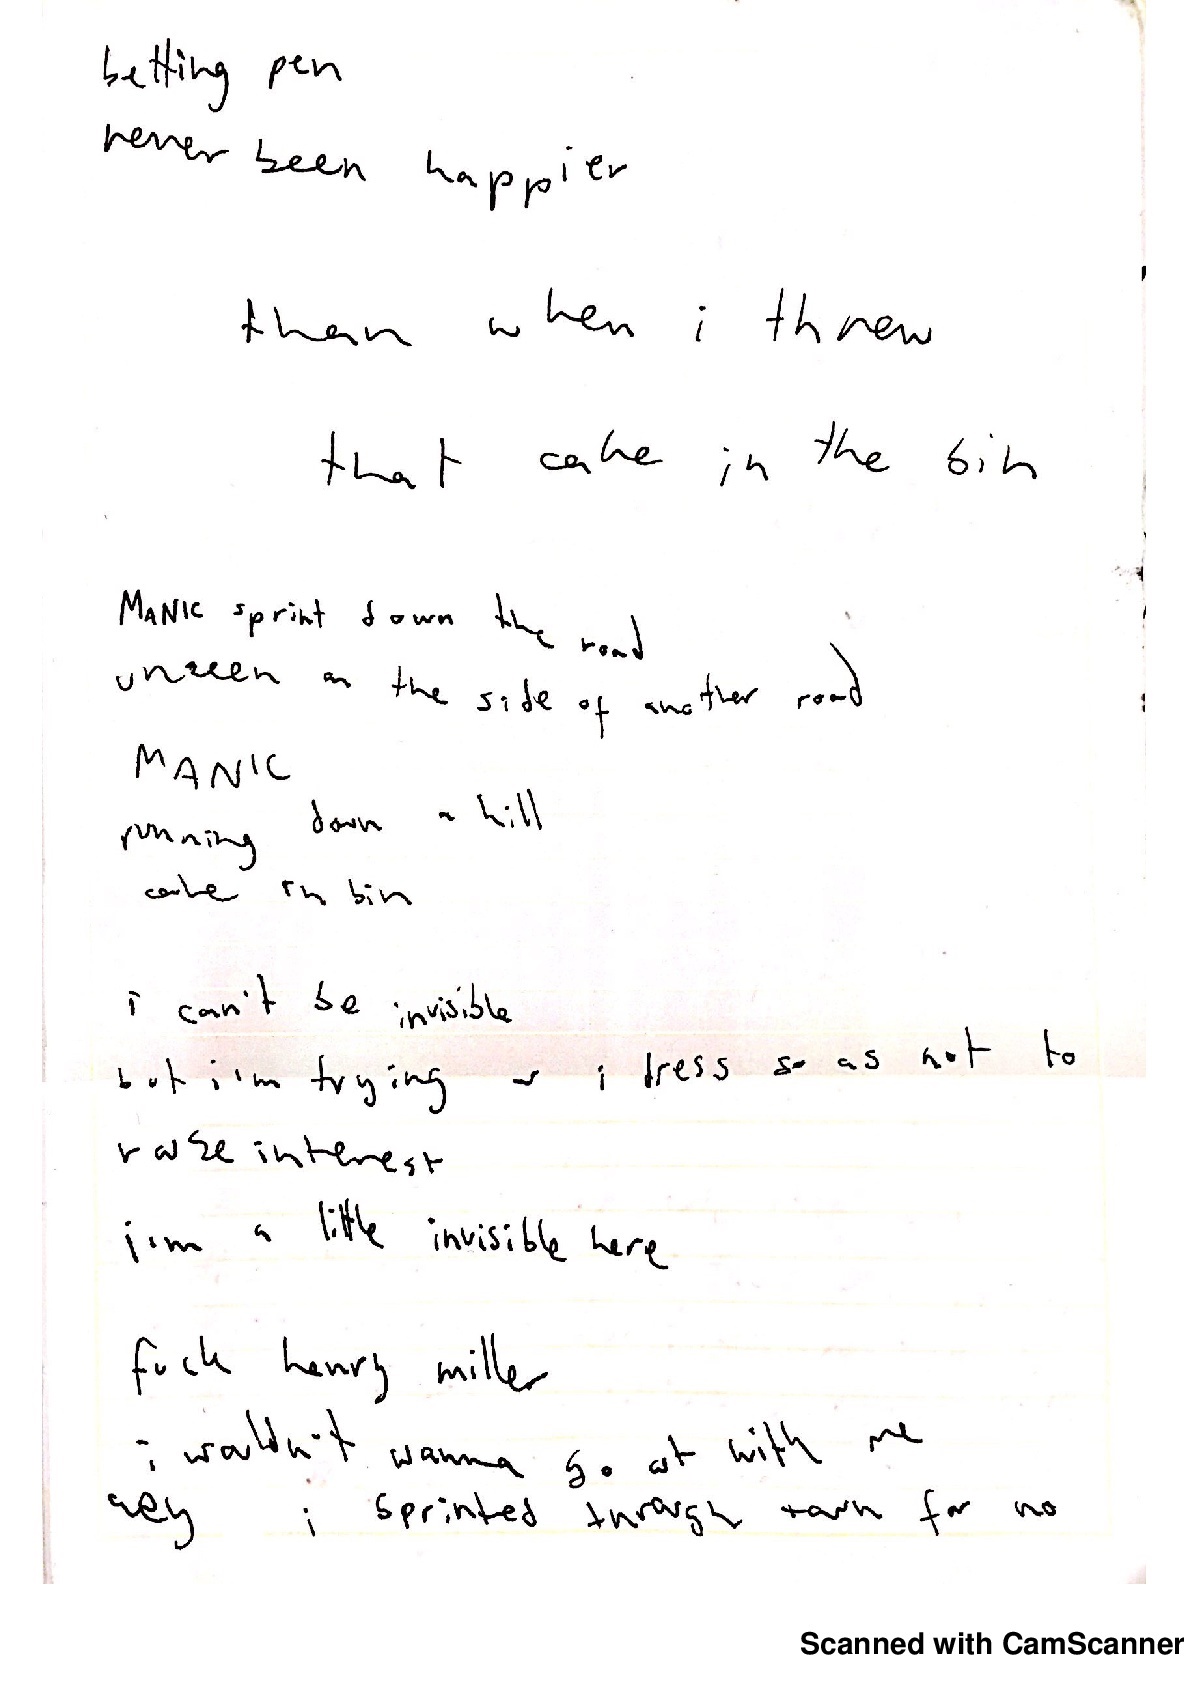 betting pen
never been happier
than when i threw
that cake in the bin
MANIC sprint down the road
unseen on the side of another road
MANIC
running down a hill
cake in bin
i can't be invisible
but i'm trying i dress so as not to
raise interest
i'm a little invisible here
fuck henry miller
i wouldn't wanna go out with me
i sprinted through town for no
Scanned with CamScanner